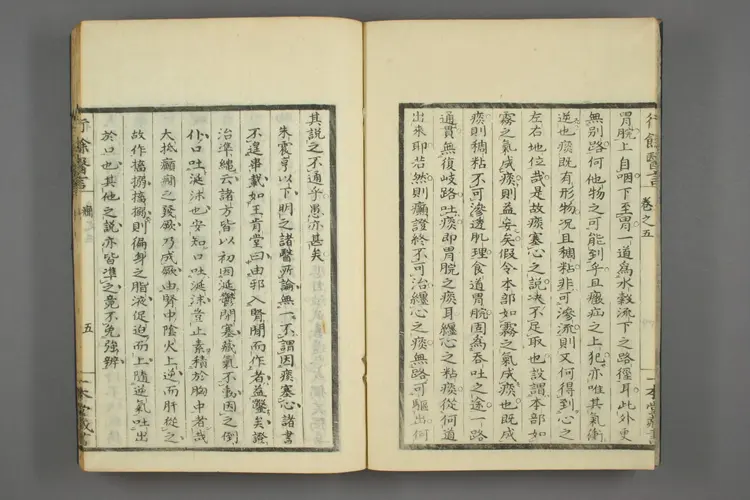 行餘醫言 卷之五
胃脘上自咽下至胃一道爲水穀流下之路徑耳此外更
無別路何他物之可能到乎且癥疝之上犯亦唯其氣衝
逆也痰既有形物况且稠粘非可滲流則又何得到心之
左右地位哉是故痰塞心之說决不足取也設謂本部如
霧之氣成痰則益妄矣假令本部如霧之氣成痰也既成
痰則稠粘不可滲透肌理食道胃脘固爲吞吐之途一路
通貫無復岐路吐痰即胃脘之痰耳纏心之粘痰從何道
出來耶若然則癎證終不可治纏心之痰無路可驅出何
一本堂藏書
其說之不通乎愚亦甚矣
朱震亨以下明之諸醫所論無一不謂因痰塞心諸書
不遑串載如王肯堂曰由邪入腎閒而作者益鑿矣證
治準繩云諸方皆以初因涎鬱閉塞藏氣不動因之倒
仆口吐涎沫也安知口吐涎沫豈止素積於胸中者哉
大抵癲癎之發厥乃成厥由腎中陰火上逆而肝從之
故作搐搦搐搦則偏身之脂液促迫而上隨逆氣吐出
於口也其他之說亦皆準之竟不免強辨
行餘醫言 癎 五
一本堂藏書